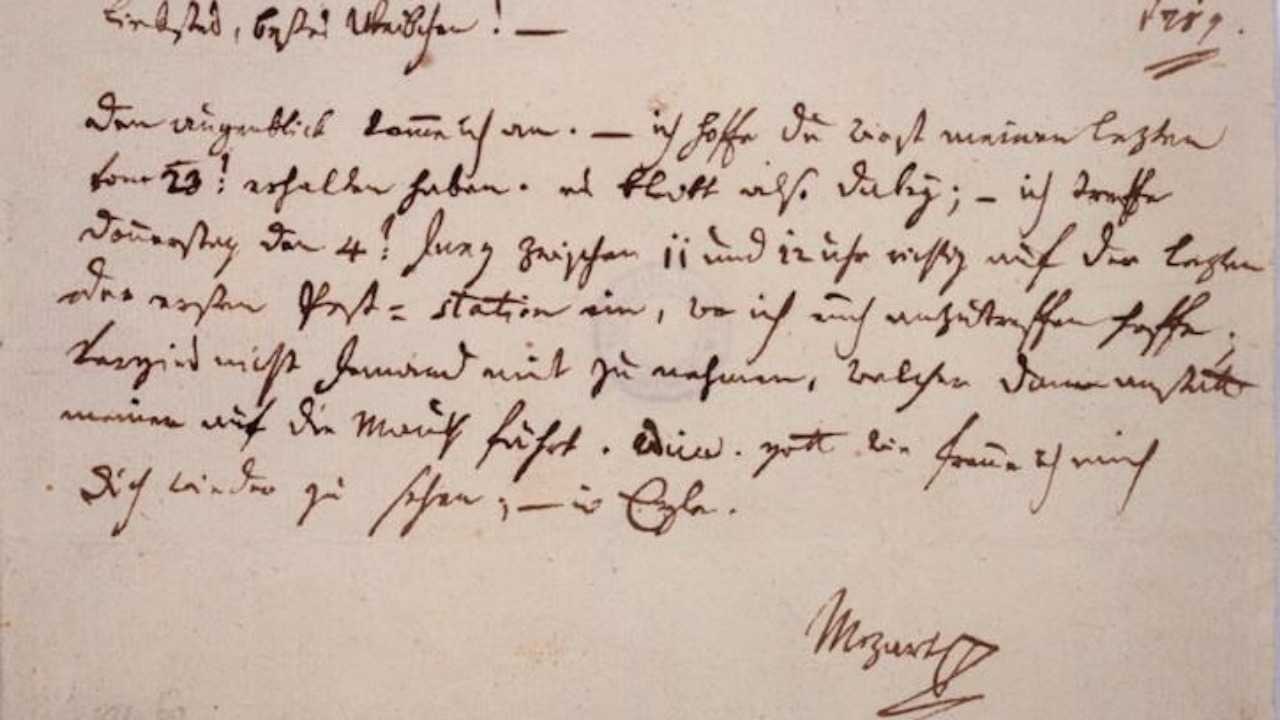 liebstes, bestes Weibchen! —
1789.
den augenblick komme ich an. — ich hoffe du wirst meinen letzten
vom 23:t erhalten haben. es bleibt also dabey; — ich treffe
donnerstag den 4:t Juny zwischen 11 und 12 uhr richtig auf der letzten
oder ersten Post=station ein, wo ich Euch anzutreffen hoffe.
vergiss nicht Jemand mit zu nehmen, welcher dann anstatt
meiner auf die Mauth fährt. adieu. gott wie freue ich mich
dich wieder zu sehen; — in Eyle.
Mozart